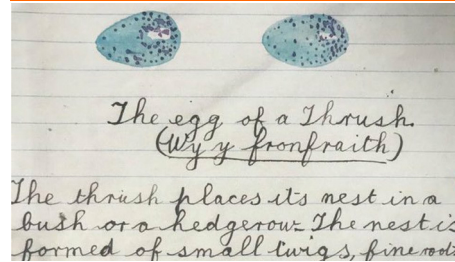 The egg of a Thrush.
(Wy y fronfraith)
The thrush places its nest in a
bush or a hedgerow. The nest is
formed of small twigs, fine root